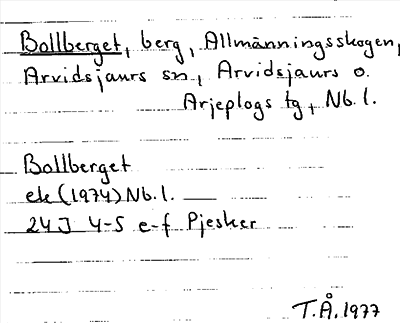 Bollberget, berg, Allmänningsskogen,
Arvidsjaurs sn, Arvidsjaurs o.
Arjeplogs tg, Nb. l.
Bollberget
ek (1974) Nb. l. —
24J 4-5 e-f Pjesker
T.Å. 1977